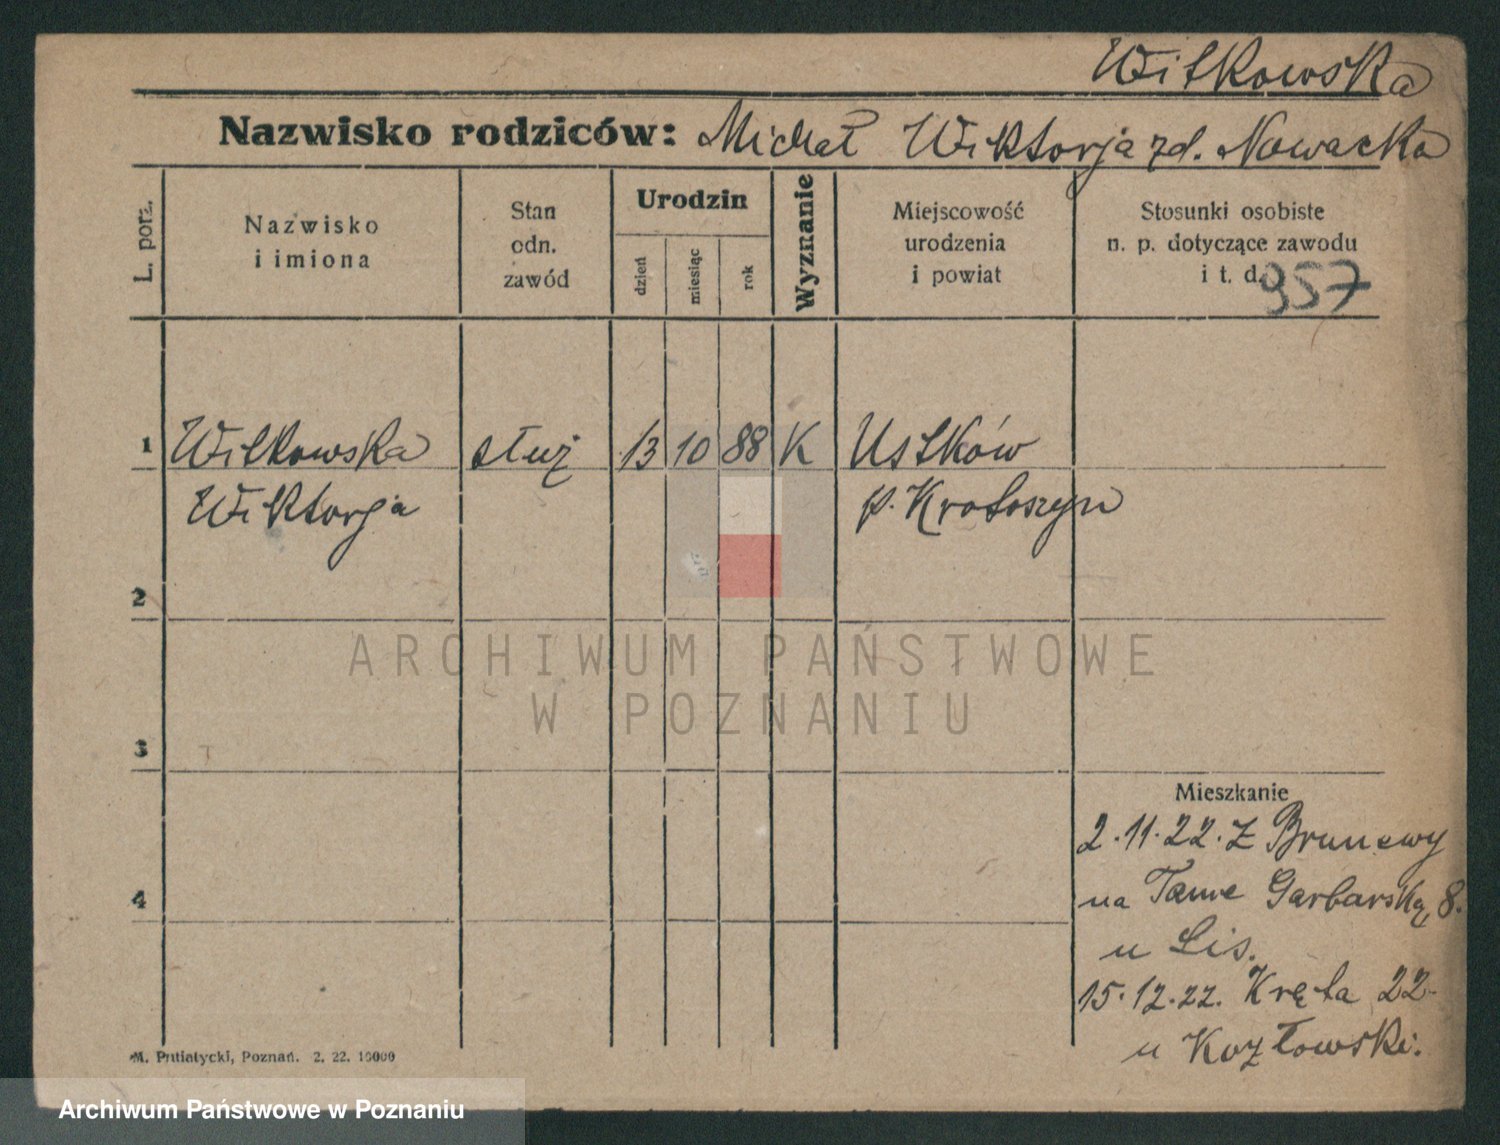 Witkowska
Nazwisko rodziców: Michał Wiktorja zd. Nowacka
L. porz.
Nazwisko
i imiona
Stan
odn.
zawód
Urodzin
dzień
miesiąc
rok
Wyznanie
Miejscowość
urodzenia
i powiat
Stosunki osobiste
n. p. dotyczące zawodu
i t. d.
957
1 Witkowska służ 13 10 88 K Ustków
Wiktorja p. Krotoszyn
2
ARCHIWUM PAŃSTWOWE
W POZNANIU
3
Mieszkanie
2.11.22. z Brunowy
na Tamę Garbarską 8.
4
u Lis.
15.12.22. Kręta 22
u Kozłowski.
M. Putiatycki, Poznań. 2. 22. 10000
Archiwum Państwowe w Poznaniu